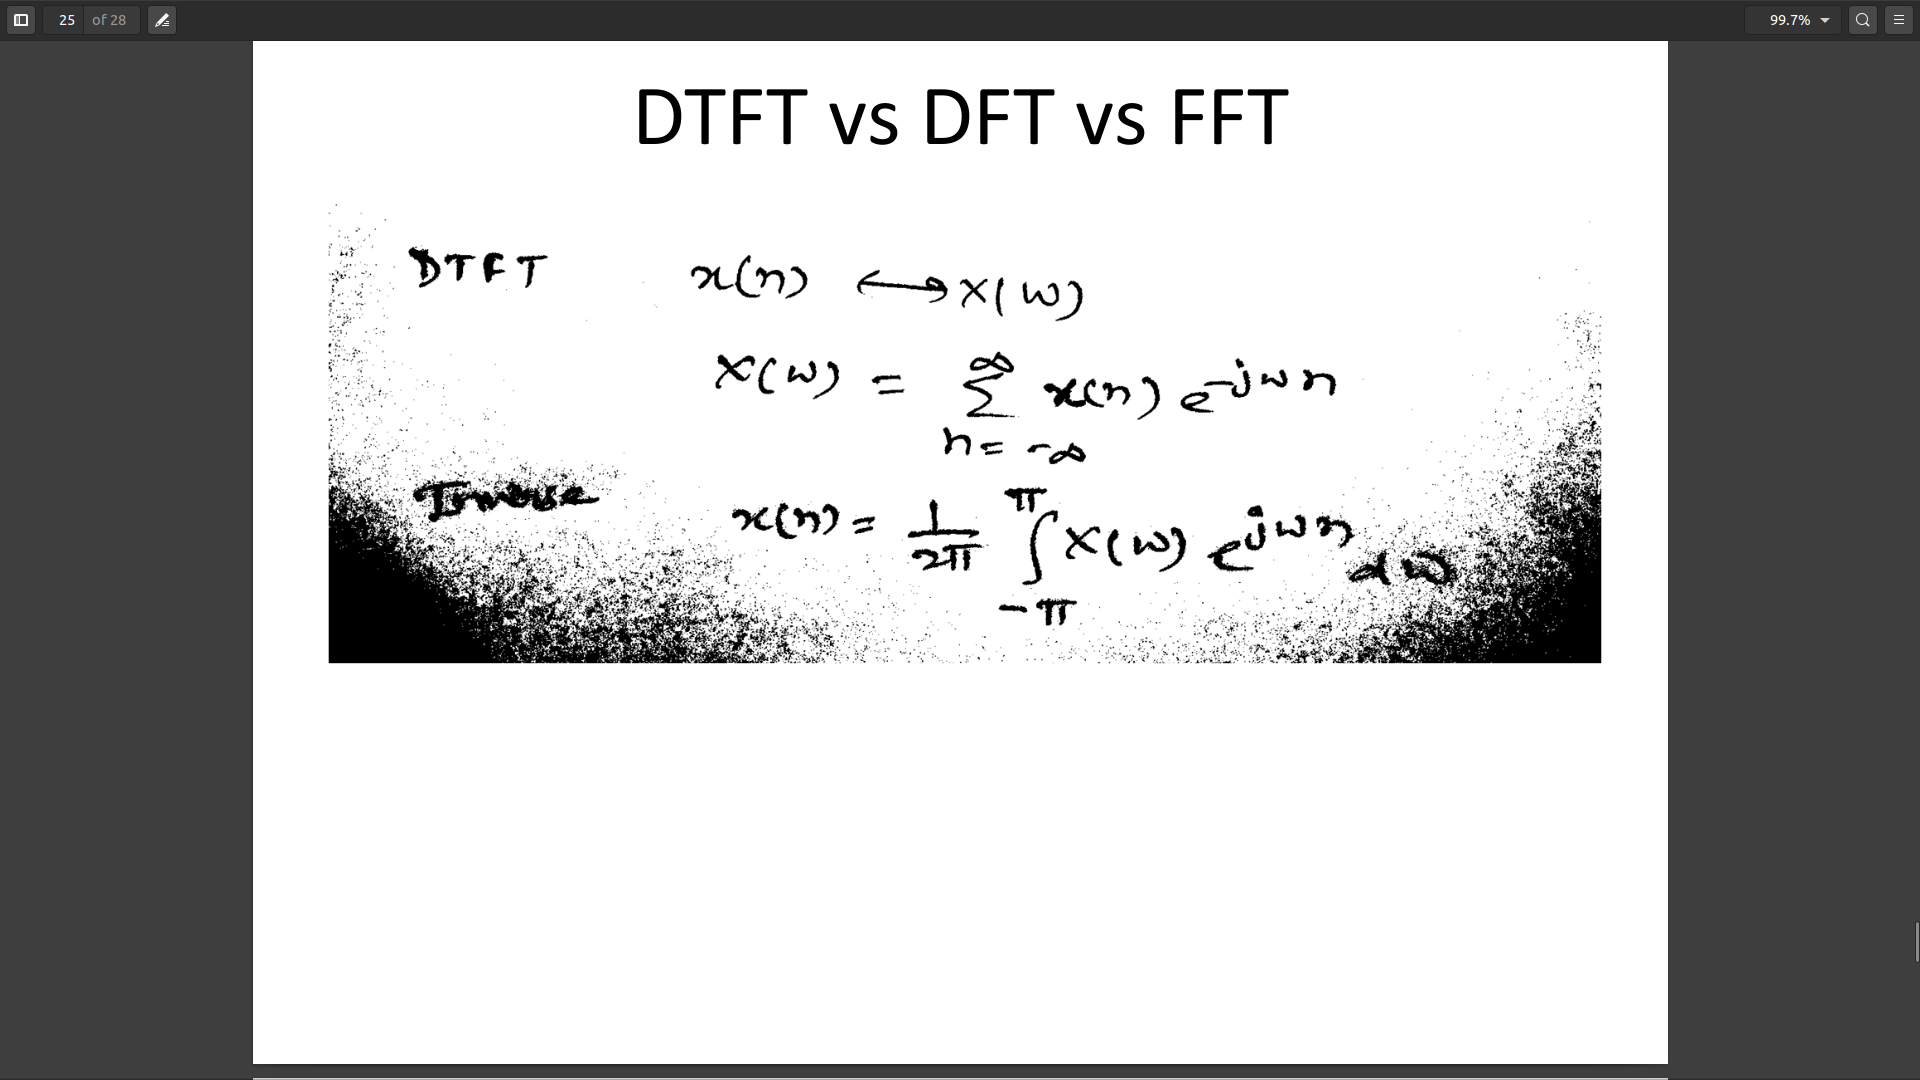 25 of 28
99.7%
DTFT vs DFT vs FFT
DTFT x(n) ⟷ X(ω)
X(ω) = ∞ ∑ n = -∞ x(n) e^-jωn
Inverse x(n) = 1/2π π ∫ -π X(ω) e^jωn dω